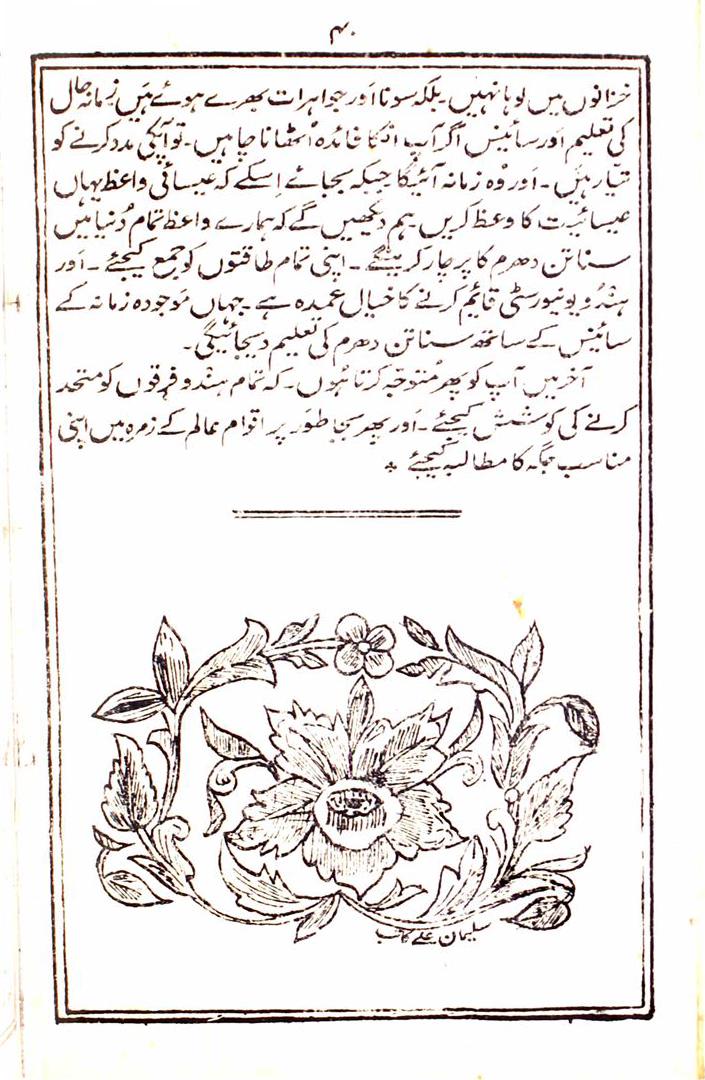 ۴۰
خزانوں میں لوہا نہیں۔ بلکہ سونا اور جواہرات بھرے ہوئے ہیں زمانہ حال
کی تعلیم اور سائینس اگر آپ انکا فائدہ اُٹھانا چاہیں۔ تو آپکی مدد کرنے کو
تیار ہیں۔ اور وُہ زمانہ آئیگا جبکہ بجائے اِسکے کہ عیسائی واعظ یہاں
عیسائیت کا وعظ کریں ہم دیکھیں گے کہ ہمارے واعظ تمام دُنیا میں
سناتن دھرم کا پرچار کرینگے۔ اپنی تمام طاقتوں کو جمع کیجئے۔ اور
ہندُو یونیورسٹی قائیم کرنے کا خیال عمدہ ہے۔ جہاں موجودہ زمانہ کے
سائینس کے ساتھ سناتن دھرم کی تعلیم دیجائیگی۔
آخر میں آپ کو پھر مُتوجّہ کرتا ہُوں۔ کہ تمام ہندُو فرقوں کو متحد
کرنے کی کوشش کیجئے۔ اور پھر بجا طور پر اقوام عالم کے زمرہ میں اپنی
مناسب جگہ کا مطالبہ کیجئے *
سلیمان علے کاتب